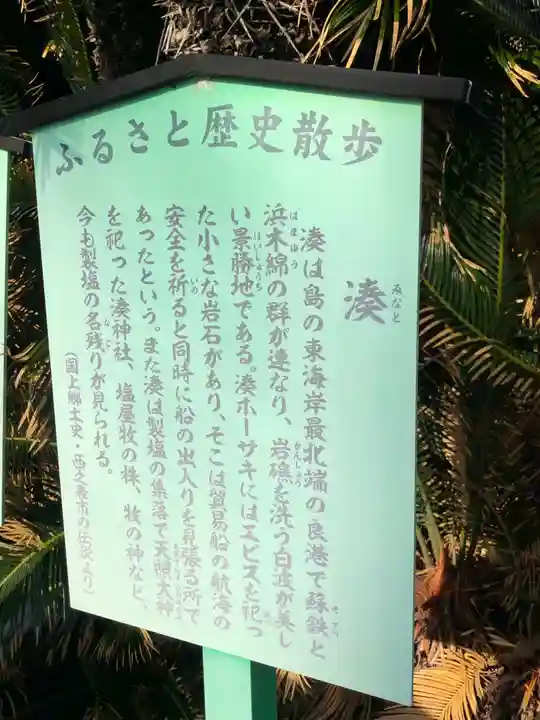 ふるさと歴史散歩
湊
みなと
湊は島の東海岸最北端の良港で蘇鉄と
浜木綿の群が連なり、岩礁を洗う白波が美し
い景勝地である。湊ホーサキにはエビスを祀っ
た小さな岩石があり、そこは貿易船の航海の
安全を祈ると同時に船の出入りを見張る所で
あったという。また湊は製塩の集落で天照大神
を祀った湊神社、塩屋牧の株、牧の神など、
今も製塩の名残りが見られる。
（国上郷土史・西之表市の伝説より）